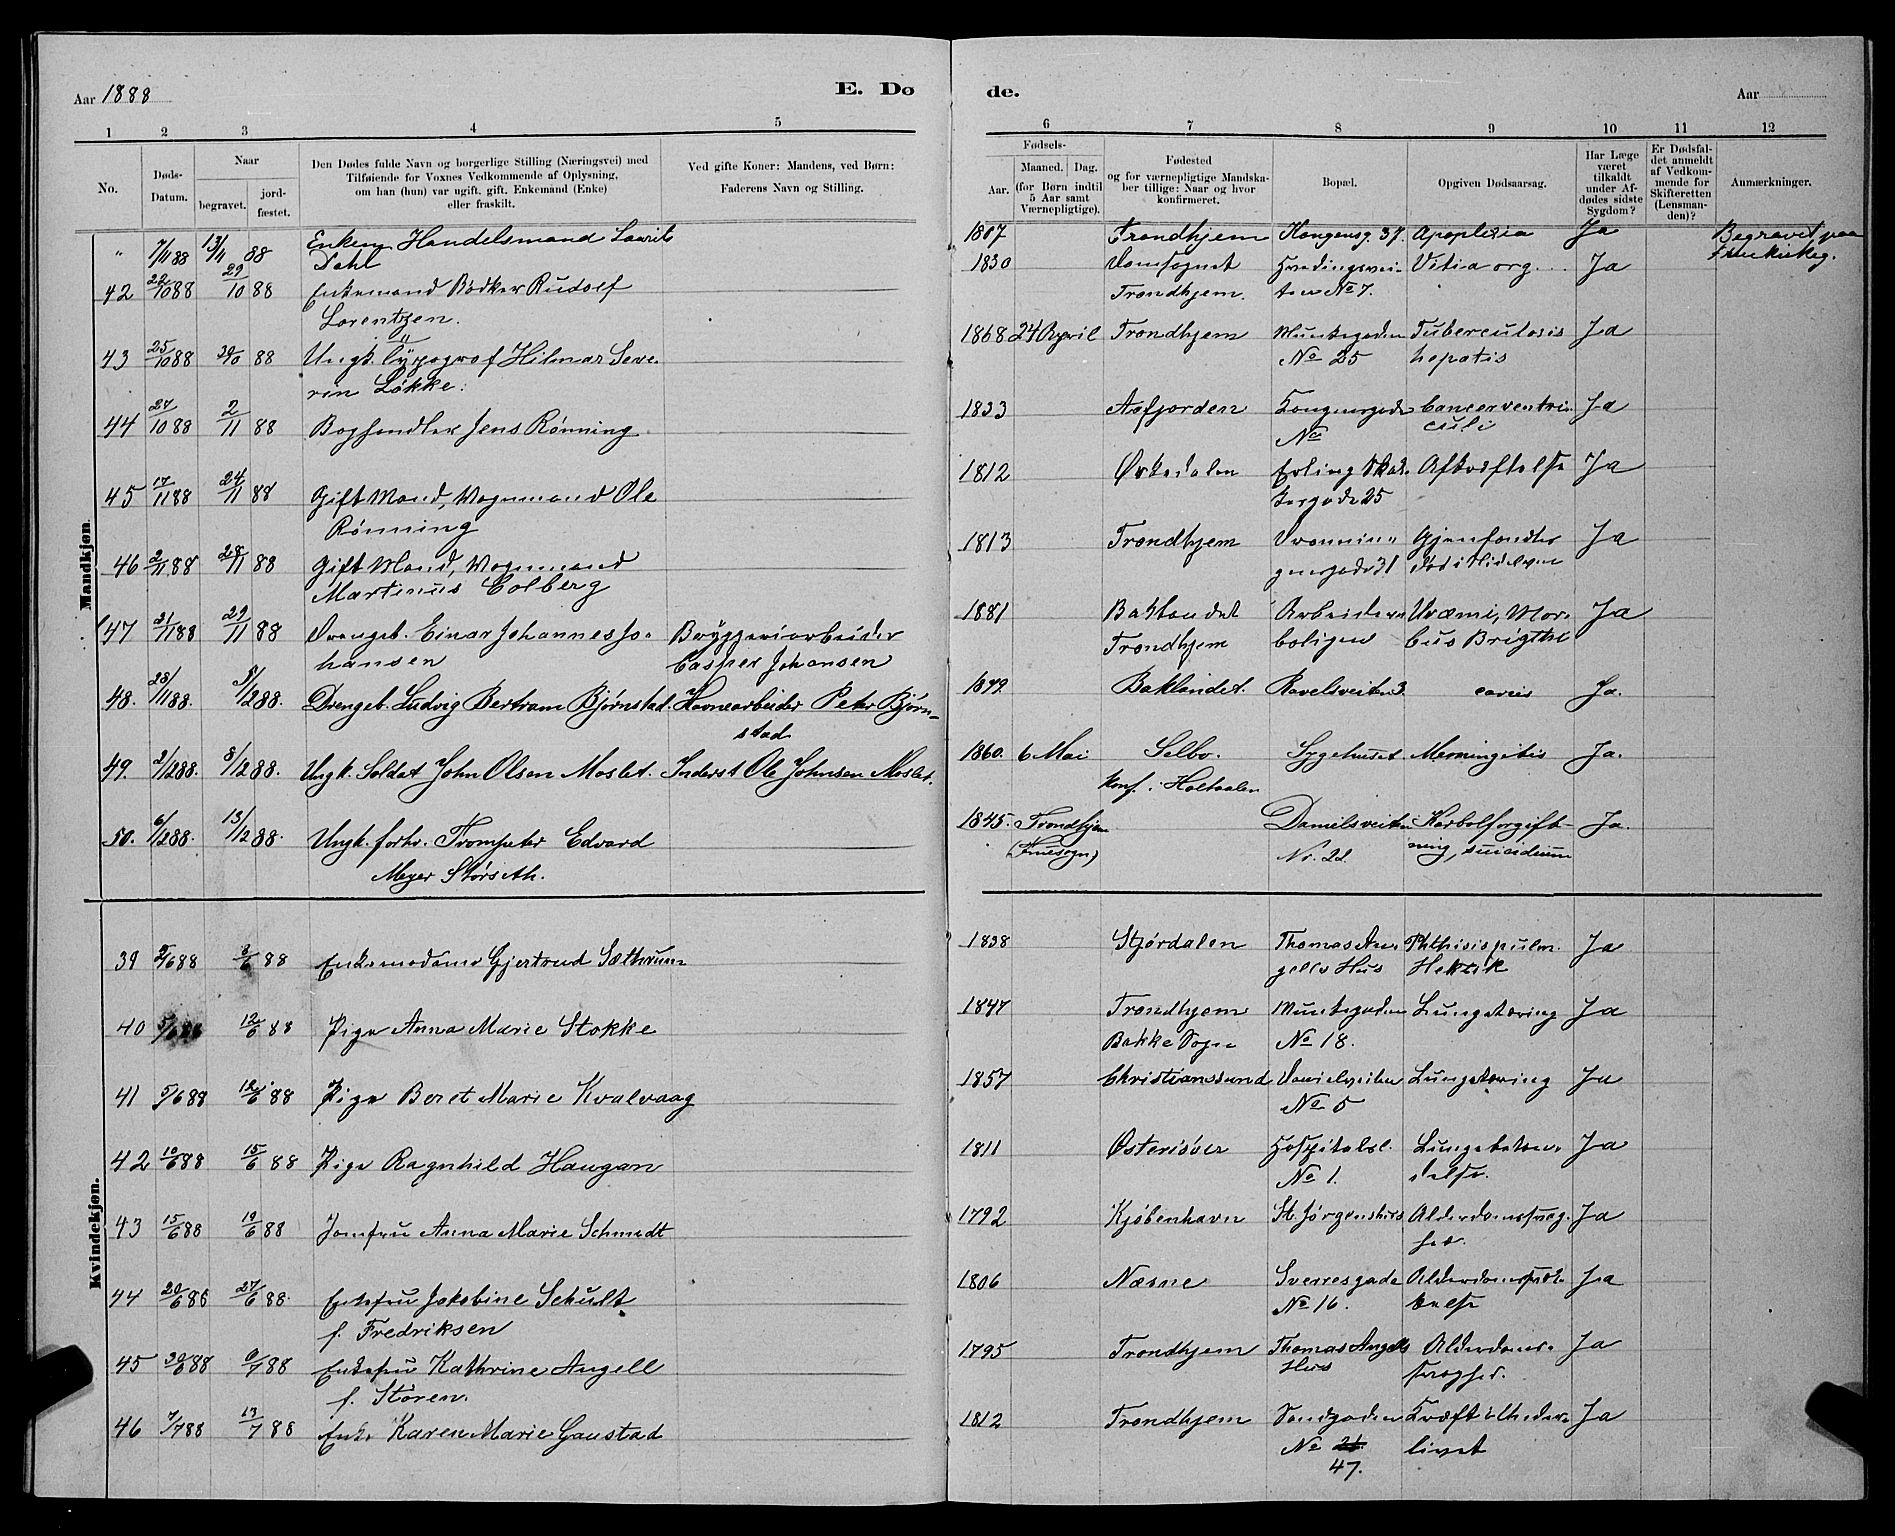 Aar 1888
E. Dø
de.
Aar
1 2 3 4 5 6 7 8 9 10 11 12
No.
Døds-
Datum.
Naar
begravet.
jord-
fæstet.
Den Dødes fulde Navn og borgerlige Stilling (Næringsvei) med
Tilføiende for Voxnes Vedkommende af Oplysning,
om han (hun) var ugift, gift, Enkemand (Enke)
eller fraskilt.
Ved gifte Koner: Mandens, ved Børn:
Faderens Navn og Stilling.
Fødsels-
Aar.
Maaned.
Dag.
(for Børn indtil
5 Aar samt
Værnepligtige).
Fødested
og for værnepligtige Mandska-
ber tillige: Naar og hvor
konfirmeret.
Bopæl.
Opgiven Dødsaarsag.
Har Læge
været
tilkaldt
under Af-
dødes sidste
Sygdom?
Er Dødsfal-
det anmeldt
af Vedkom-
mende for
Skifteretten
(Lensman-
den)?
Anmærkninger.
Mandkjøn.
" 7/4 88 13/4 88 Enkem. Handelsmand Laurits 1807 Trondhjem Kongensg. 37. Apoplexia Ja Begravet paa
Dahl
42 22/10 88 29/10 88 Enkemand Bødker Rudolf 1830 Domsognet Vitia org. Ja
Lorentzen. Trondhjem. No 7.
43 25/10 88 30/10 88 Ungk. Typograf Hilmar Seve- 1868 24 April Trondhjem Munkegaden Tuberculosis Ja
rin Løkke. No 25 hepatis
44 27/10 88 2/11 88 Boghandler Jens Rønning 1833 Aafjorden Kongensgade Cancer ventri- Ja
No culi
45 17/11 88 24/11 88 Gift Mand, Vognmand Ole 1812 Ørkedalen Erling Skak- Afkræftelse Ja
Rønning kesgade 25
46 2/11 88 28/11 88 Gift Mand, Vognmand 1813 Trondhjem Dronnin- Gjenfunden Ja
Martinus Colberg gensgade 31 død i Nidelven
47 21/11 88 29/11 88 Drengeb. Einar Johannes Jo- Bryggeriarbeider 1881 Baklandet Arbeider- Uræmi, Mor- Ja
hansen Casper Johansen Trondhjem boligen bus Brigthi
48. 28/11 88. 5/12 88. Drengeb. Ludvig Bertram Bjørnstad. Havnearbeider Peter Bjørn- 1879 Baklandet. Ravelsveiten 3. caries Ja.
stad
49. 2/12 88. 8/12 88. Ungk. Soldat John Olsen Moslet. Inderst Ole Johnsen Moslet. 1860. 6 Mai Selbo. Sygehuset Meningitis Ja.
konf. i Holtaalen
50. 6/12 88. 13/12 88. Ungk. forhv. Trompeter Edvard 1845. Trondhjem Danielsveiten Karbolforgift- Ja.
Meyer Størseth. (Fruesogn) No. 22. ning, suicidium
Kvindekjøn.
39 2/6 88 8/6 88 Enkemadame Gjertrud Sæthrum 1838 Stjørdalen Thomas An- Phthisis pulm. Ja
gells Hus Hektik
40 5/6 88 12/6 88 Pige Anna Marie Stokke 1847 Trondhjem Munkegaden Lungetæring Ja
Bakke Sogn No 18.
41 5/6 88 12/6 88 Pige Beret Marie Kvalvaag 1857 Christianssund Danielsveiten Lungetæring Ja
No 5
42 10/6 88 15/6 88 Pige Ragnhild Haugan 1811 Østerisøer Hospitalsl. Lungebetæn- Ja
No 1. delse.
43 15/6 88 19/6 88 Jomfru Anna Marie Schmidt 1792 Kjøbenhavn St. Jørgenshus Alderdomssvag- Ja
hed.
44 20/6 88 27/6 88. Enkefru Jakobine Schult 1806 Næsne Sverresgade Ja
f. Fredriksen No 16.
45 30/6 88 6/7 88 Enkefru Kathrine Angell 1795 Trondhjem Thomas Angells Alderdoms- Ja
f. Støren. Hus svaghed.
46 7/7 88 13/7 88 Enke Karen Marie Gaustad 1812 Trondhjem Sandgaden Kræft i Ja
No 21 livet
47.